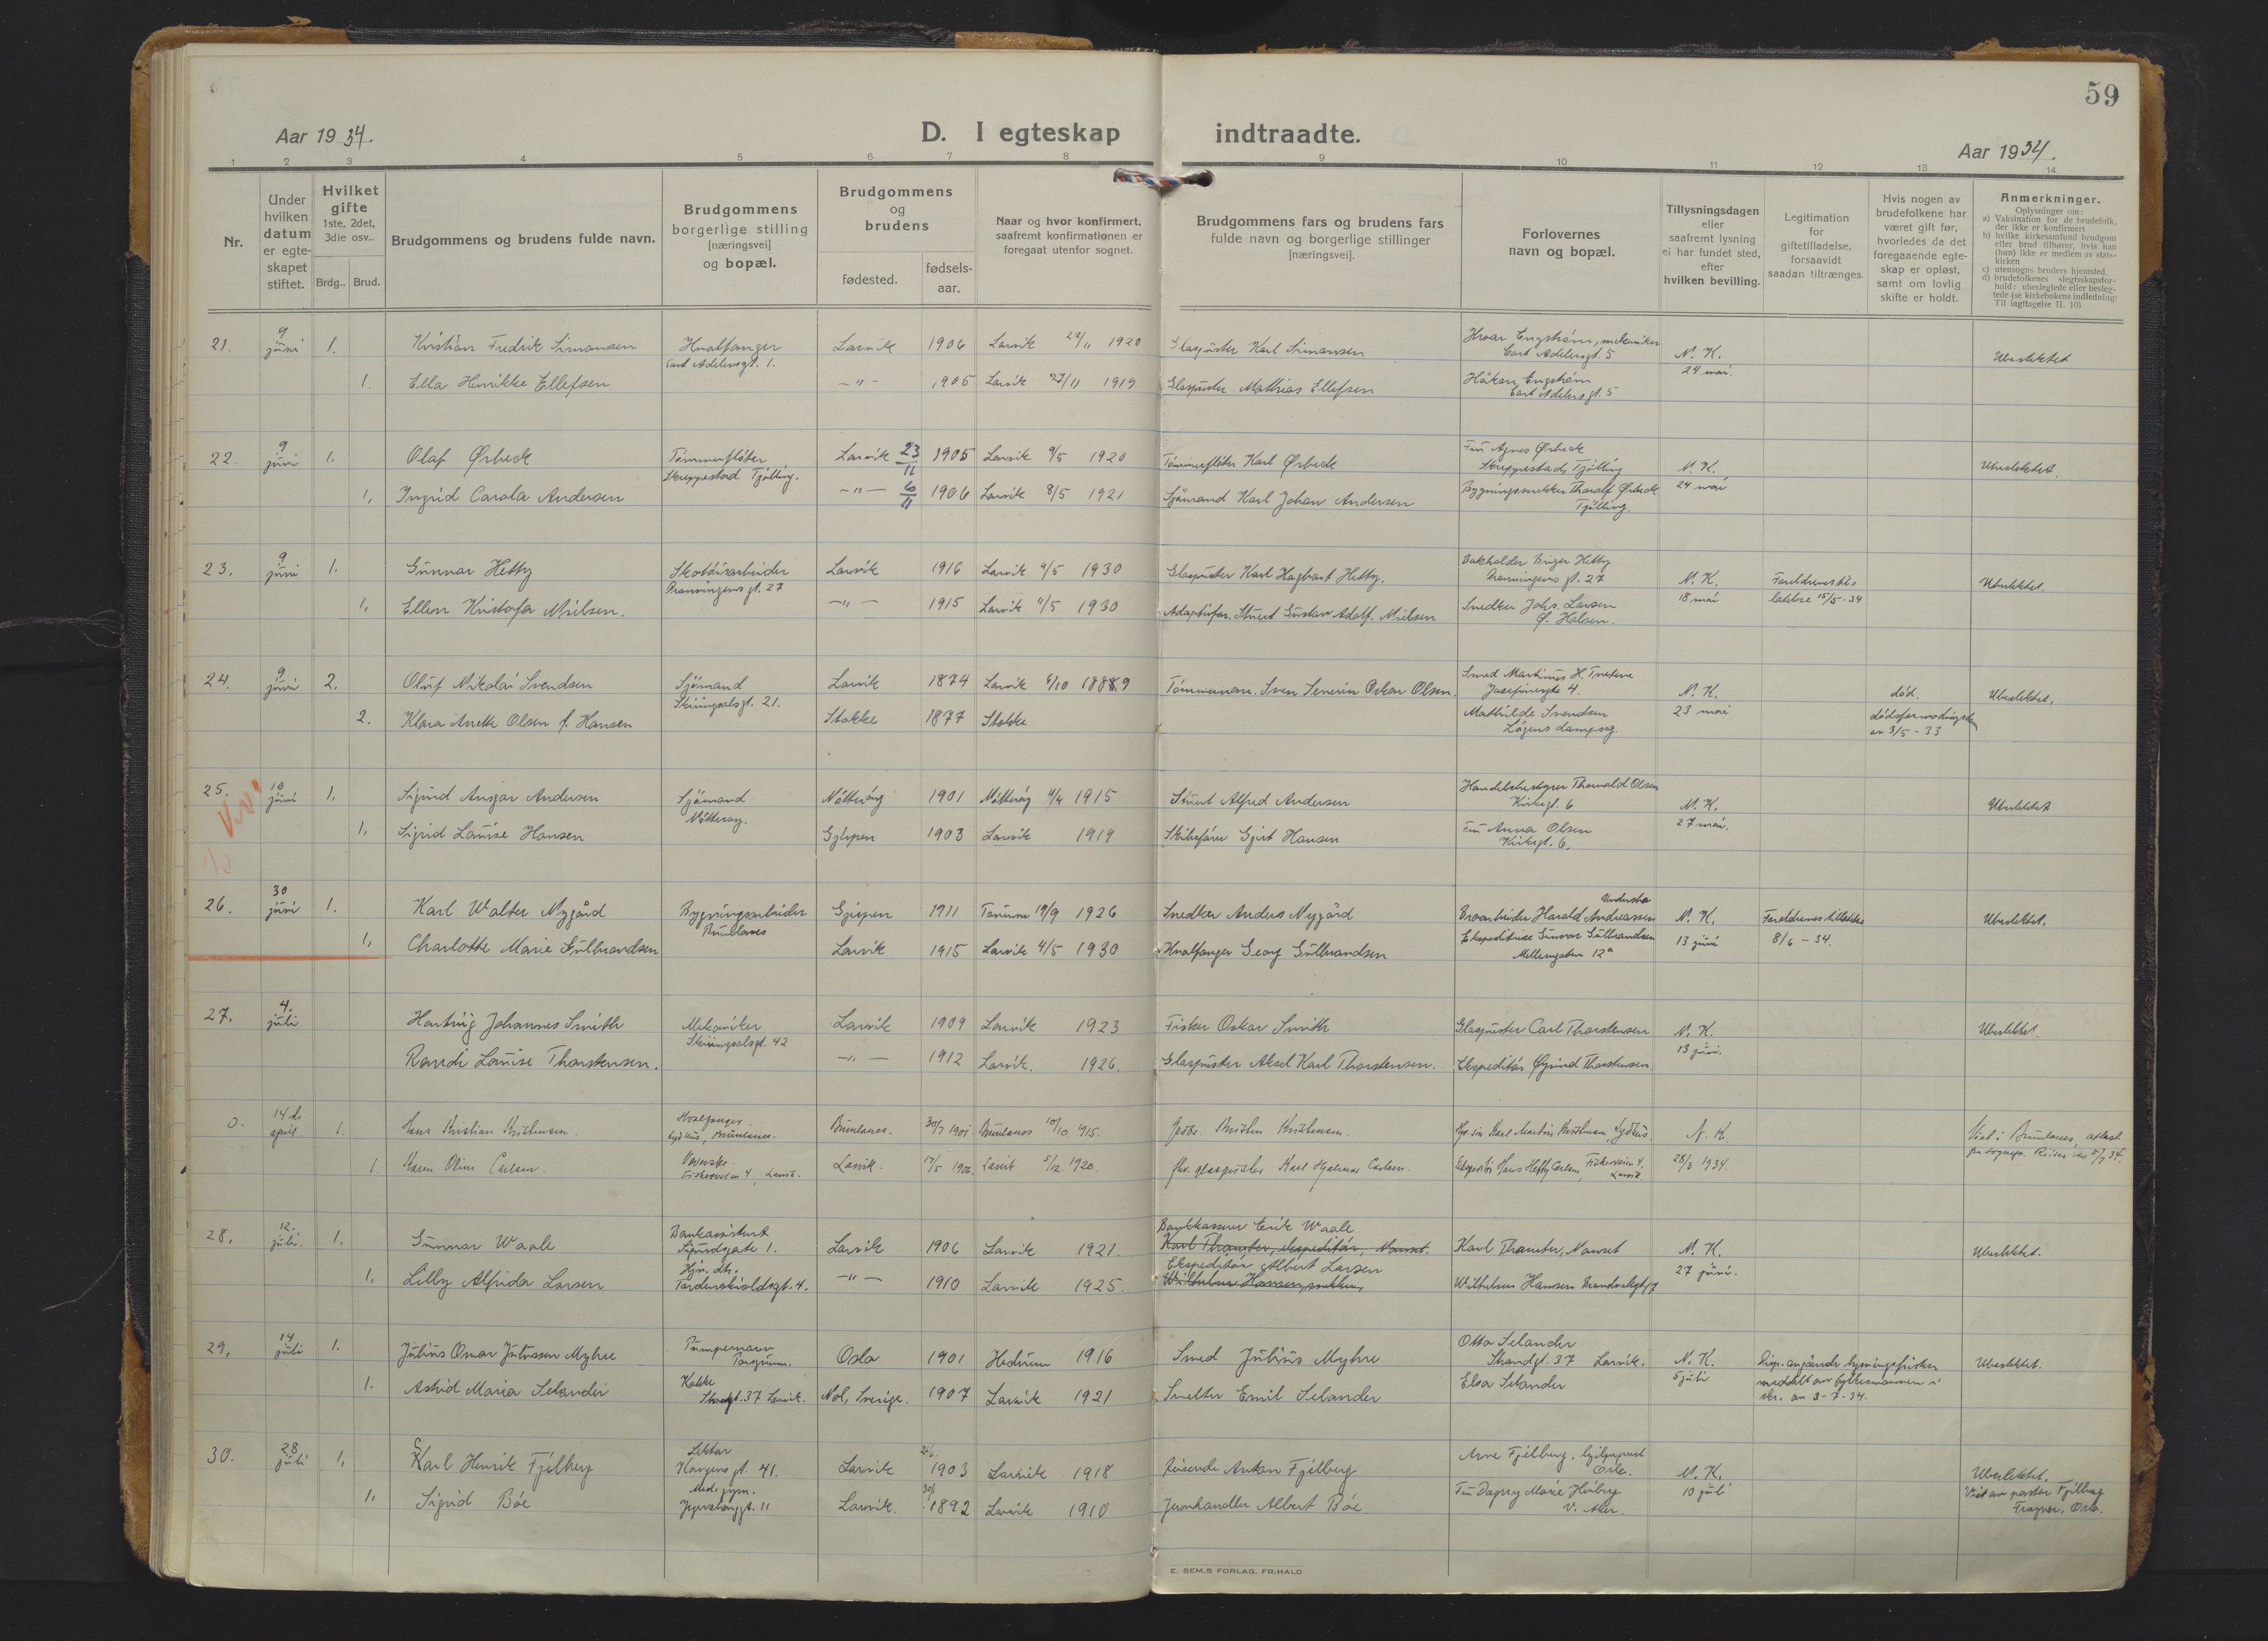 59
Aar 1934.
D. I egteskap indtraadte.
Aar 1934.
1 2 3 4 5 6 7 8 9 10 11 12 13 14
Nr.
Under hvilken datum er egteskapet stiftet.
Hvilket gifte 1ste, 2det, 3die osv..
Brdg.. Brud.
Brudgommens og brudens fulde navn.
Brudgommens borgerlige stilling [næringsvei] og bopæl.
Brudgommens og brudens
fødested.
fødsels-aar.
Naar og hvor konfirmert, saafremt konfirmationen er foregaat utenfor sognet.
Brudgommens fars og brudens fars fulde navn og borgerlige stillinger [næringsvei].
Forlovernes navn og bopæl.
Tillysningsdagen eller saafremt lysning ei har fundet sted, efter hvilken bevilling.
Legitimation for giftetilladelse, forsaavidt saadan tiltrænges.
Hvis nogen av brudefolkene har været gift før, hvorledes da det foregaaende egteskap er opløst, samt om lovlig skifte er holdt.
Anmerkninger.
Oplysninger om:
a) Vaksination for de brudefolk, der ikke er konfirmert
b) hvilke kirkesamfund brudgom eller brud tilhører, hvis han (hun) ikke er medlem av statskirken
c) utensogns bruders hjemsted.
d) brudefolkenes slegtsskapsforhold: ubeslegtede eller beslegtede (se kirkebokens indledning: Til iagttagelse II. 10)
21. 9 juni 1. Kristian Fredrik Simonsen Hvalfanger Cort Adelersgt. 1. Larvik 1906 Larvik 1920 Glaspuster Karl Simonsen Hroar Engström, mekaniker Cort Adelersgt. 5 N. K. 24 mai. Ubeslektet
1. Ella Henrikke Ellefsen –"– 1905 Larvik 1919 Glaspuster Mathias Ellefsen Håkon Engström Cort Adelersgt. 5
22. 9 juni 1. Olaf Ørbeck Tømmerfløter Skreppestad Tjølling. Larvik 23/11 1905 Larvik 9/5 1920 Tømmerfløter Karl Ørbeck Fru Agnes Ørbeck Skreppestad, Tjølling N. K. 24 mai Ubeslektet.
1. Ingrid Carola Andersen –"– 6/11 1906 Larvik 8/5 1921 Sjømand Karl Johan Andersen Bygningssnekker Thoralf Ørbeck Tjølling.
23. 9 juni 1. Gunnar Hetty Skotøiarbeider Dronningens gt. 27 Larvik 1916 Larvik 4/5 1930 Glaspuster Karl Hagbart Hetty. Bokholder Birger Hetty Dronningens gt. 27 N. K. 18 mai Foreldrenes tillatelse 15/5-34 Ubeslektet.
1. Ellen Kristofa Nielsen. –"– 1915 Larvik 4/5 1930 Adoptivfar. Stuert Gustav Adolf Nielsen Snedker Johs. Larsen Ø. Halsen.
24. 9 juni 2. Oluf Nikolai Svendsen Sjømand Skiringsalsgt. 21. Larvik 1874 Larvik 6/10 1889 Tømmermann Sven Severin Oskar Olsen. Smed Martinius H. Tvetene Josefinesgt. 4. N. K. 23 mai død. Ubeslektet.
2. Klara Anette Olsen f. Hansen Stokke 1877 Stokke Mathilde Svendsen Lågens dampsag. av 3/5-33
25. 10 juni 1. Sigurd Ansgar Andersen Sjømand Nøtterøy. Nøtterøy 1901 Nøtterøy 1915 Stuert Alfred Andersen Handelsbestyrer Thorvald Olsen Kirkegt. 6 N. K. 27 mai. Ubeslektet
1. Sigrid Louise Hansen Gjerpen 1903 Larvik 1919 Skibsfører Gjert Hansen Fru Anna Olsen Kirkegt. 6.
26. 30 juni 1. Karl Walter Nygård Bygningsarbeider Brunlanes Gjerpen 1911 Tanum 19/9 1926 Snedker Anders Nygård Broarbeider Harald Andreassen N. K. 13 juni Foreldrenes tillatelse 8/6-34. Ubeslektet.
1. Charlotte Marie Gulbrandsen Larvik 1915 Larvik 4/5 1930 Hvalfanger Georg Gulbrandsen Ekspeditrise Gunvor Gulbrandsen Møllergaten 12a
27. 4. juli Hartvig Johannes Smith Mekaniker Skiringsalsgt. 42 Larvik 1909 Larvik 1923 Fisker Oskar Smith Glaspuster Carl Thorstensen N. K. 13 juni. Ubeslektet.
Randi Louise Thorstensen. –"– 1912 Larvik. 1926. Glaspuster Aksel Karl Thorstensen. Ekspeditør Øyvind Thorstensen.
0. 14de april. 1. Hans Kristian Kristensen. Hvalfanger. Brunlanes. Brunlanes. 30/7 1901 Brunlanes 10/10 1915. Karl Martin Kristensen, N. K. 28/3 1934. Viet i Brunlanes,
1. Karen Oline Carlsen. Veverske. Fiskerveien 4, Larvik. Larvik. 1906 Larvik 5/12 1920. fhv. glaspuster Karl Hjalmar Carlsen. Ekspeditør Hans Hetty Carlsen, Fiskerveien 4, Larvik.
28. 12. juli. 1. Gunnar Waale Bankassistent Sigurdsgate 1. Larvik 1906 Larvik 1921. Bankkasserer Erik Waale Karl Thauter, ekspeditør, Nanset. Karl Thauter, Nanset N. K. 27 juni. Ubeslektet.
1. Lilly Alfrida Larsen Hjv. dtr. Tordenskioldsgt. 4. –"– 1910 Larvik 1925. Ekspeditør Albert Larsen Wilhelm Hansen, snekker, Wilhelm Hansen Brandvaktgt. 7
29. 14 juli 1. Julius Omar Juliussen Myhre Pumpemann Porsgrunn. Oslo 1901 Hedrum 1916 Smed Julius Myhre Otto Selander Strandgt. 37 Larvik. N. K. 5 juli Disp. angående lysningsfristen meddelt av fylkesmannen i skr. av 3-7-34. Ubeslektet.
1. Astrid Maria Selander Kokke Strandgt. 37 Larvik. Nol, Sverige. 1907 Larvik 1921 Smelter Emil Selander Elsa Selander
30. 28 juli 1. Carl Henrik Fjelberg Lektor Haugens gt. 41. Larvik 1903 Larvik 1918 Reisende Anton Fjelberg Arne Fjelberg, hjelpeprest Oslo. N. K. 10 juli Ubeslektet.
1. Sigrid Bøe Med. gym. Larvik. 1892 Larvik 1910 Jernhandler Albert Bøe. Fru Dagny Marie Høiberg V. Aker. Viet av pastor Fjelberg Frogner, Oslo.
E. SEM,S FORLAG, FR.HALD